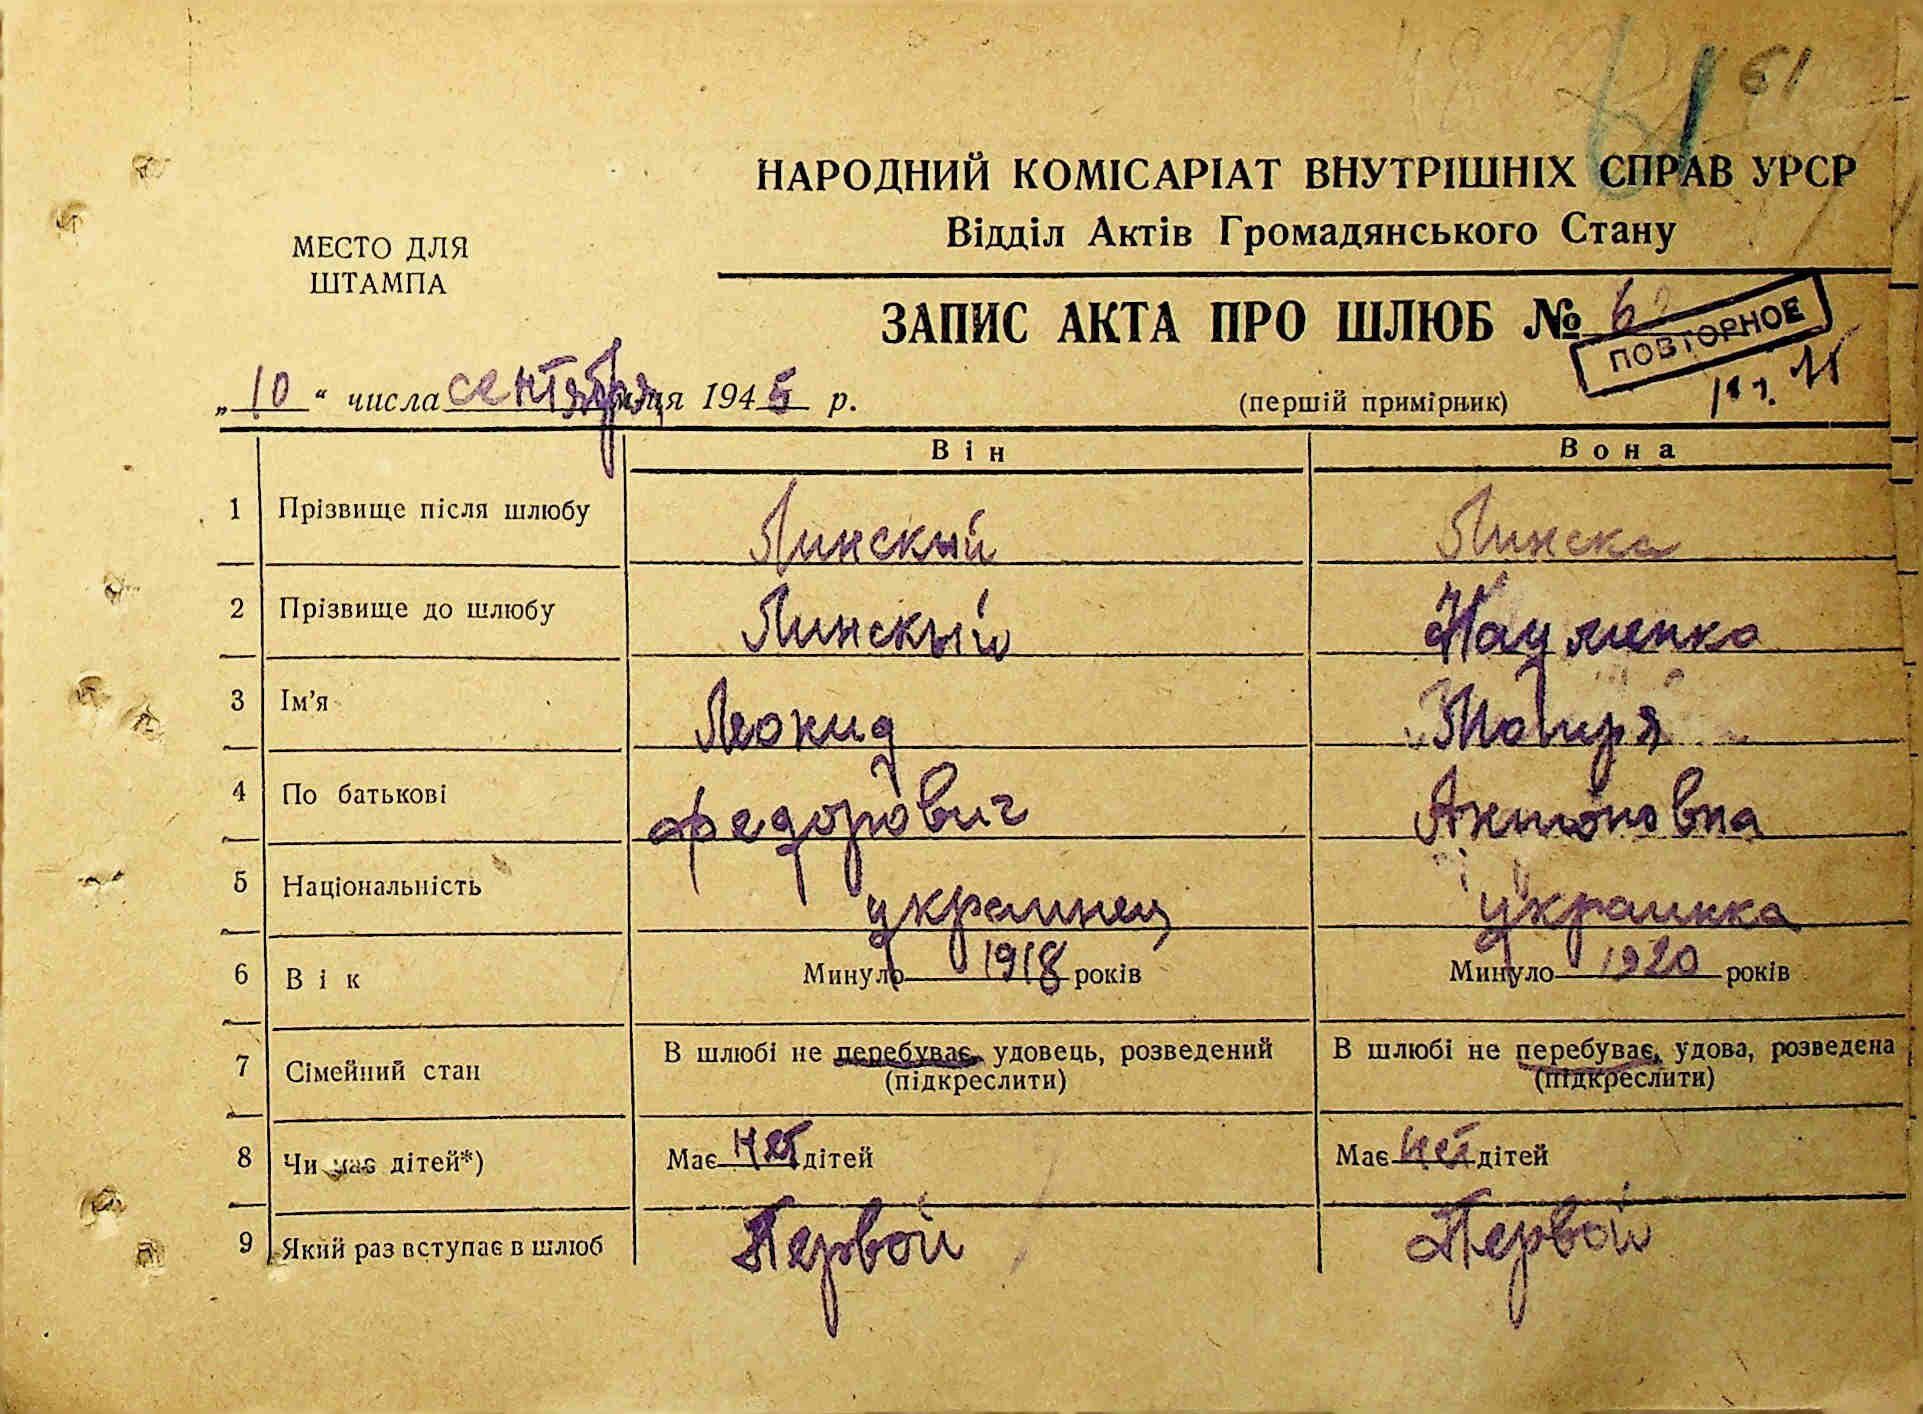 61
НАРОДНИЙ КОМІСАРІАТ ВНУТРІШНІХ СПРАВ УРСР
Відділ Актів Громадянського Стану
МЕСТО ДЛЯ
ШТАМПА
ЗАПИС АКТА ПРО ШЛЮБ №
ПОВТОРНОЕ
„ 10 “ числа сентября 1945 р.
(першій примірник)
Він Вона
1 Прізвище після шлюбу Линский Линска
2 Прізвище до шлюбу Линскый Науменко
3 Ім'я Леонид
4 По батькові федорович Антоновна
5 Національність украинец украинка
6 Вік Минуло 1918 років Минуло 1920 років
7 Сімейний стан В шлюбі не перебуває, удовець, розведений В шлюбі не перебуває, удова, розведена
(підкреслити) (підкреслити)
8 Чи має дітей*) Має нет дітей Має нет дітей
9 Який раз вступає в шлюб Первой Первой